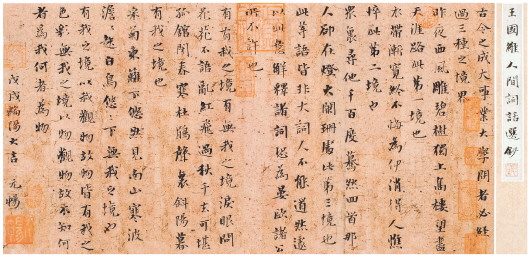 王國維人間詞話選鈔
古今之成大事業大學問者必經
過三種之境界
昨夜西風雕碧樹獨上高樓望盡
天涯路此第一境也
衣帶漸寬終不悔為伊消得人憔
悴此第二境也
眾裏尋他千百度驀然回首那
人卻在燈火闌珊處此第三境也
此等語皆非大詞人不能道然遽
以此意解釋諸詞恐為晏歐諸公
所不許也
有有我之境有無我之境淚眼問
花花不語亂紅飛過秋千去可堪
孤館閉春寒杜鵑聲裏斜陽暮
有我之境也
采菊東籬下悠然見南山寒波
澹〻起白鳥悠〻下無我之境也
有我之境以我觀物故物皆有我之
色彩無我之境以物觀物故不知何
者為我何者為物
戊戌端陽大吉 元暢